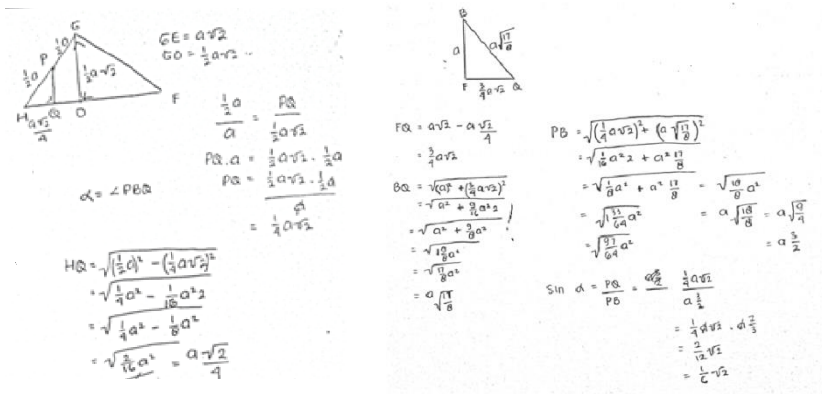 G
½a
P
½a
½a√2
H
Q
O
F
a√2/4
GE = a√2
GO = ½a√2
½a / a = PQ / ½a√2
PQ . a = ½a√2 . ½a
PQ = ½a√2 . ½a / a
= ¼a√2
α = ∠PBQ
HQ = √((½a)² − (¼a√2)²)
= √(¼a² − 1/16 a²2)
= √(¼a² − 1/8 a²)
= √(2/16 a²) = a√2/4
B
a
a√(17/8)
F
¾a√2
Q
FQ = a√2 − a√2/4
= ¾a√2
BQ = √((a)² + (¾a√2)²)
= √(a² + 9/16 a²2)
= √(a² + 9/8 a²)
= √(17/8 a²)
= a√(17/8)
PB = √((¼a√2)² + (a√(17/8))²)
= √(1/16 a²2 + a² 17/8)
= √(1/8 a² + a² 17/8) = √(18/8 a²)
= a√(18/8) = a√(9/4)
= √(97/64 a²)
= a 3/2
Sin α = PQ/PB = ¼a√2 / a 3/2
= ¼a√2 . a 2/3
= 2/12 √2
= 1/6 √2